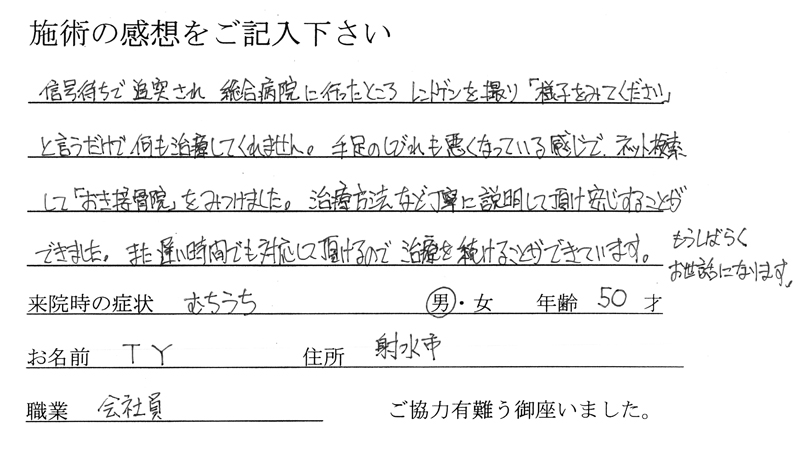 施術の感想をご記入下さい
信号待ちで追突され 総合病院に行ったところ レントゲンを撮り「様子をみてください」
と言うだけで何も治療してくれません。手足のしびれも悪くなっている感じで、ネット検索
して「おき接骨院」をみつけました。治療方法など丁寧に説明して頂け安心することが
できました。また遅い時間でも対応して頂けるので治療を続けることができています。
もうしばらく
お世話になります。
来院時の症状 むちうち 男・女 年齢 50 才
お名前 TY 住所 射水市
職業 会社員 ご協力有難う御座いました。